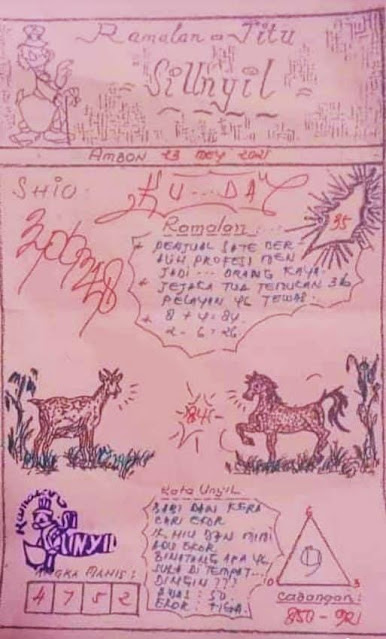 Ramalan Jitu
Si Unyil
AMBON 23 MEY 2021
SHIO:
KU...DA
95
Ramalan:
+ PENJUAL SATE BER-
ALIH PROFESI MEN
JADI... ORANG KAYA.
+ JEJAKA TUA TEMUKAN
PELAYAN YG TEWAS.
+ 8 + 4 = 84.
2 - 6 = 26.
84
Kata Unyil
BABI DAN KERA
CARI EKOR
IK HIU DAN MIMI
ADU EKOR
BINATANG APA YG
SUKA DI TEMPAT...
DINGIN???
AWAS: 50.
EKOR: TIGA.
SI
UNYIL
ANGKA MANIS:
4 7 5 2
6
9
0 3
Cabangan:
850 - 921